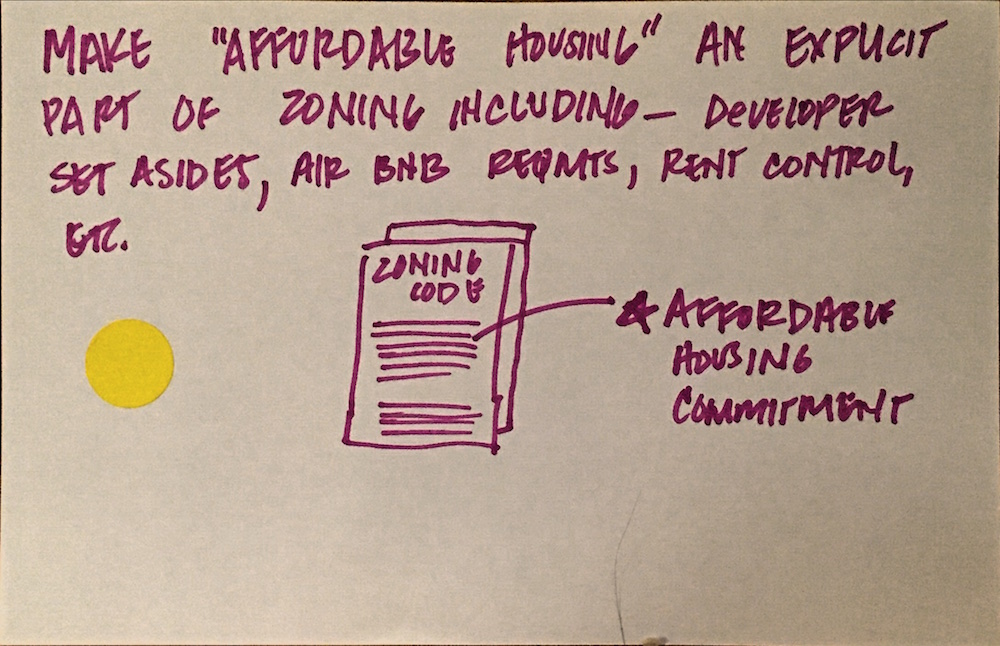 MAKE "AFFORDABLE HOUSING" AN EXPLICIT
PART OF ZONING INCLUDING — DEVELOPER
SET ASIDES, AIR BNB REQMTS, RENT CONTROL,
ETC.
ZONING
CODE
AFFORDABLE
HOUSING
COMMITMENT